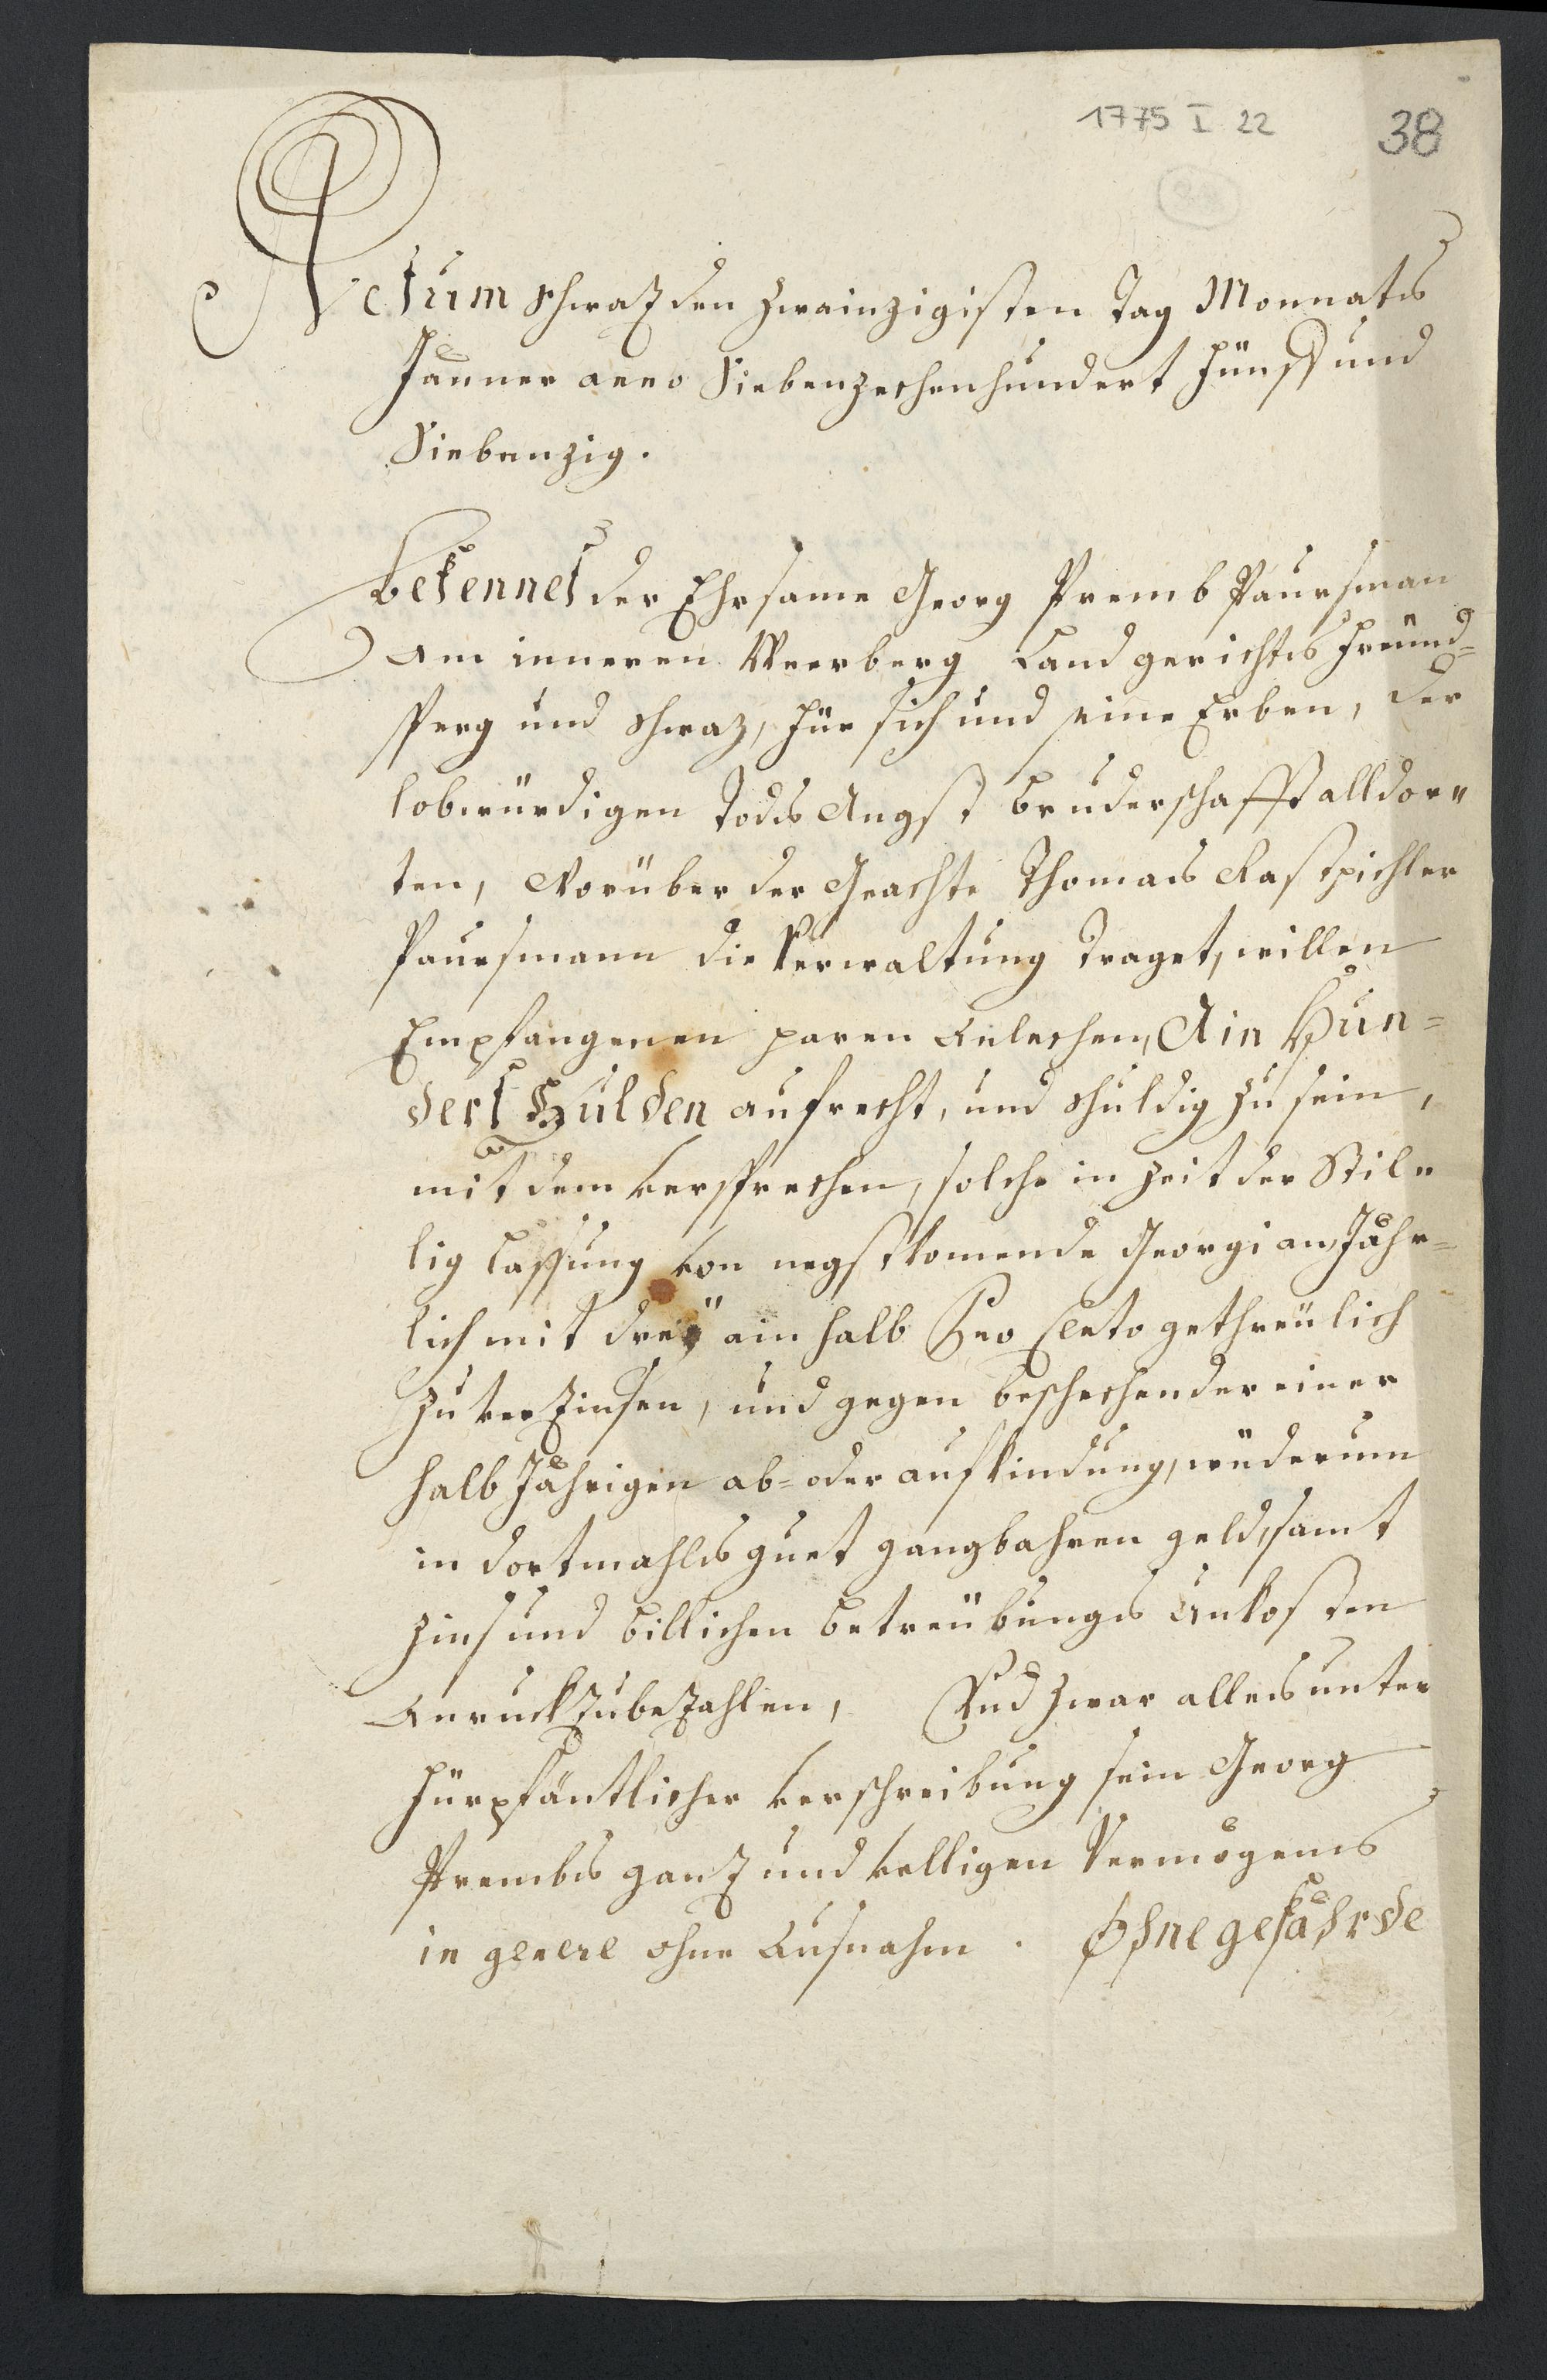 1775 I 22
38
Actum Schwaz den zwainzigisten Tag Monnats
Jänner anno Siebenzechenhundert Fünff und
Siebenzig.
Bekennet der Ehrsame Georg Premb Paursman
am inneren Weerberg Landgerichts Freünd=
sperg und Schwaz, für sich und seine Erben, der
lobwürdigen Todts Angst Bruderschafft alldor=
ten, Worüber der Geachte Thomas Rastpichler
Paursmann die Verwaltung traget, willen
Empfangenen paren Anlechen, Ain Hun=
dert Gulden aufrecht, und schuldig zu sein,
mit dem Versprechen, solche in Zeit der Stil=
lig lassung von negstkomende Georgi an, Jähr=
lich mit drey ain halb Pro Cento gethreülich
zu verzinsen, und gegen beschechender einer
halb Jährigen ab= oder aufkindung, wiederum
in dortmahls guet gangbahren geld, samt
Zins und billichen betreübungs Unkosten
Zuruckzubezahlen, Und zwar alles unter
Fürpfäntlicher Verschreibung sein Georg
Prembs ganz und völligen Vermögens
in genere ohne Ausnahm. Ohne gefährde